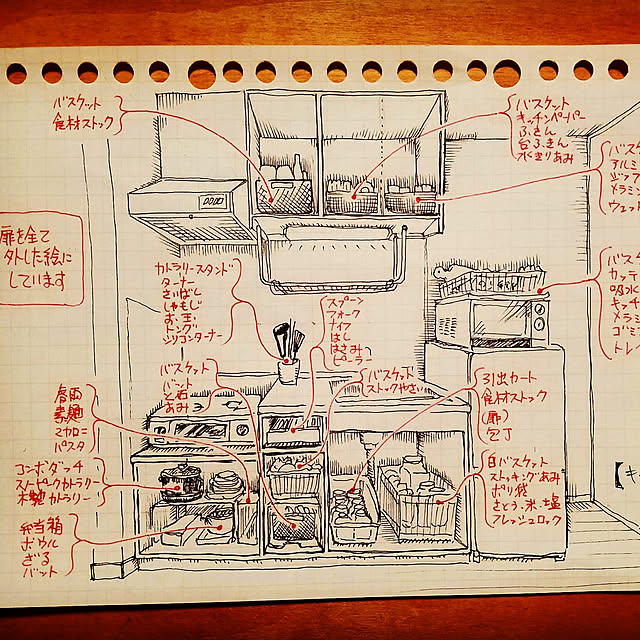 バスケット
食材ストック
バスケット
キッチンペーパー
ふきん
台ふきん
水きりあみ
バスケ
アルミ
ジップ
メラミン
ウェット
扉を全て
外した絵に
しています
カトラリースタンド
ターナー
さいばし
しゃもじ
お玉
トング
シリコンターナー
スプーン
フォーク
ナイフ
はし
はさみ
ピーラー
バスケ
カッテ
吸水
キッチ
メラミ
ゴミ
トレイ
バスケット
バット
と石
あみ
バスケット
ストックやさい
引出カート
食材ストック
(扉)
包丁
春雨
素麺
マカロニ
パスタ
コンボダッチ
スノーピークカトラリー
木製カトラリー
白バスケット
ストッキングあみ
ポリ袋
さとう・米・塩
フレッシュロック
弁当箱
ボウル
ざる
バット
【キ